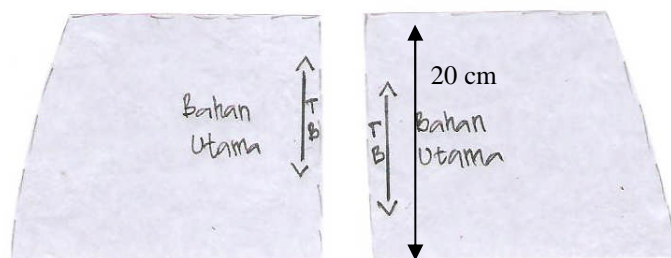 Bahan
Utama
T
B
20 cm
Bahan
Utama
T
B